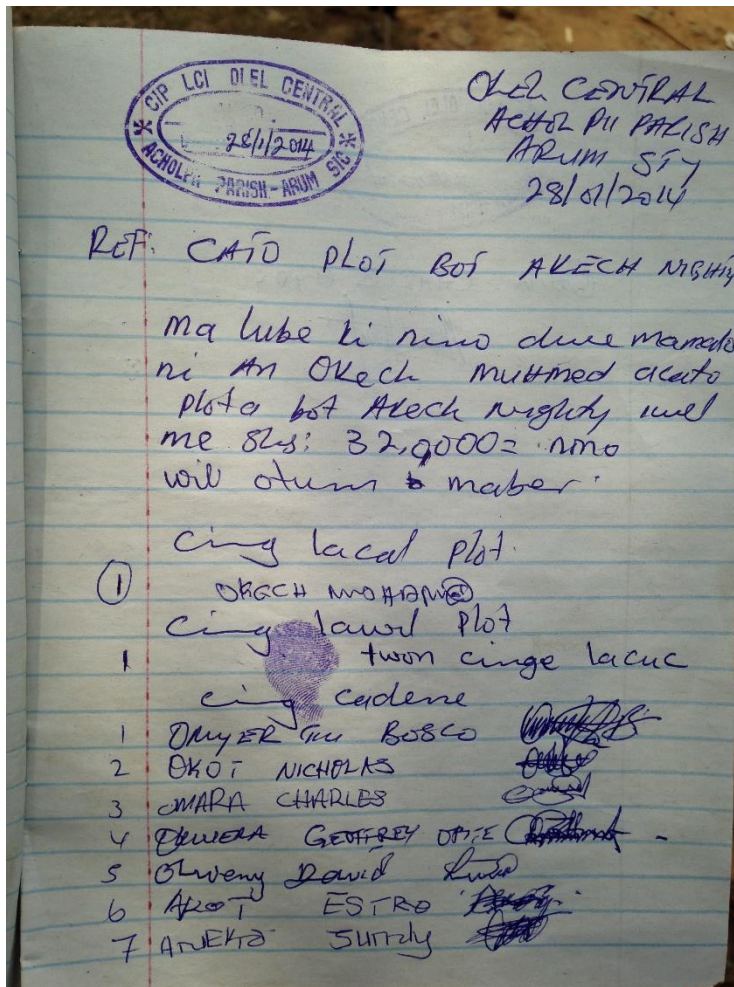 CIP LCI OLEL CENTRAL
28/1/2014
PARISH - ARUM S/C
CENTRAL
ACHOL PII PARISH
ARUM STY
28/01/2014
REF: CATO PLOT BOT AKECH NIGHTY
Ma lube ki nino dwe mamalo
ni An Okech Muhmed acato
plota bot Akech nighty wel
me Shs: 32,0000= nino
wil otum maber.
Cing lacat plot.
1 OKECH MOHAMED
Cing lawil plot
1 twon cinge lacuc
cing cadene
1 BOSCO
2 OKOT NICHOLAS
3 OMARA CHARLES
4 GEOFFREY
5 David
6 ESTRO
7